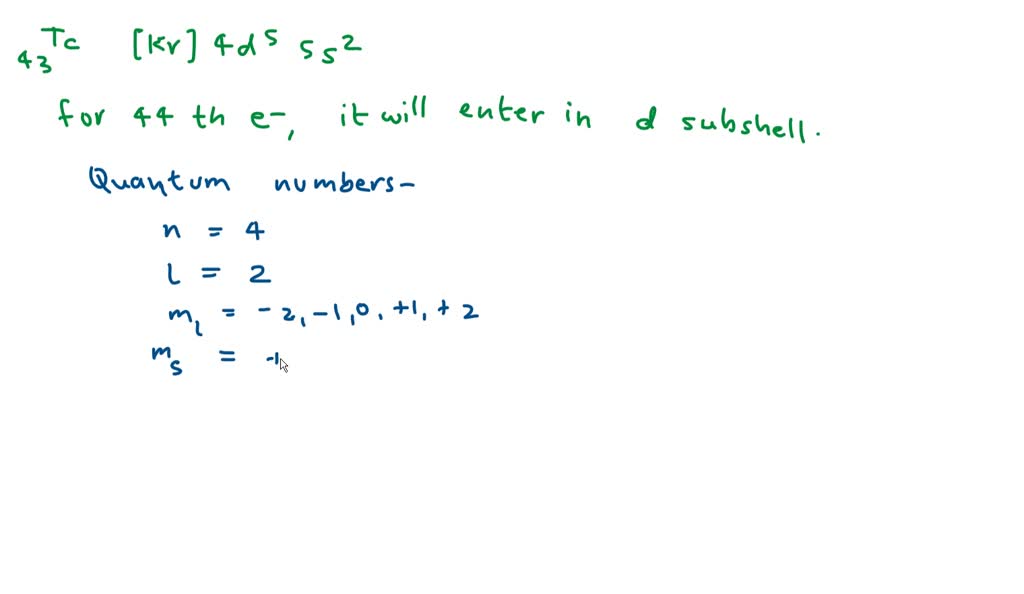 43Tc [Kr] 4d5 5s2
for 44 th e-, it will enter in d subshell.
Quantum numbers-
n = 4
l = 2
ml = -2, -1, 0, +1, +2
ms = -1